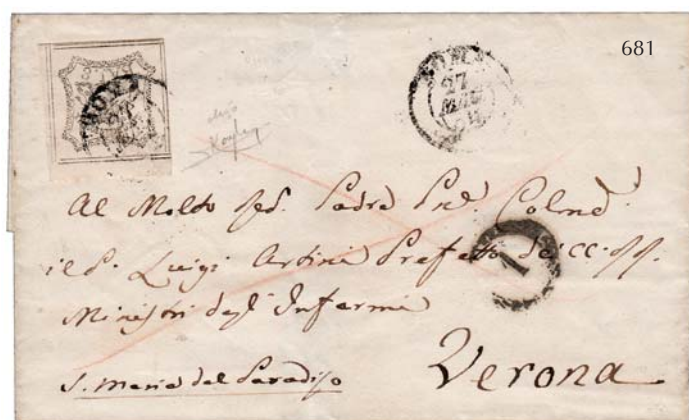 681
ROMA
27
Al Molto Red. Padre Prd. Colmo
il P. Luigi Artini Prefetto dei CC. RR.
Ministri degl' Infermi
1
S. Maria del Paradiso
Verona